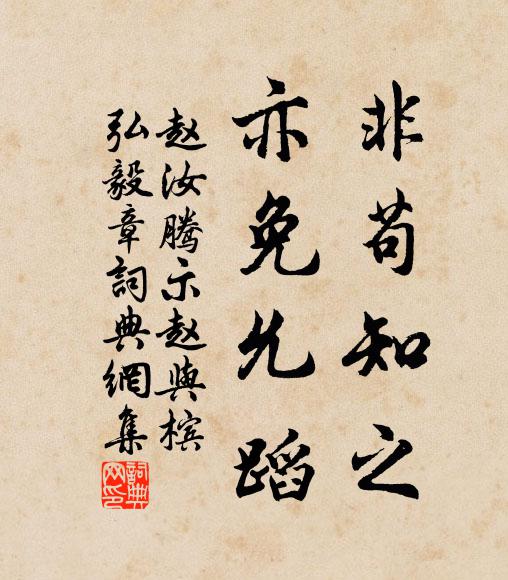 非苟知之
亦免允蹈
赵汝腾示赵与槟
弘毅章词典网集
词典网印